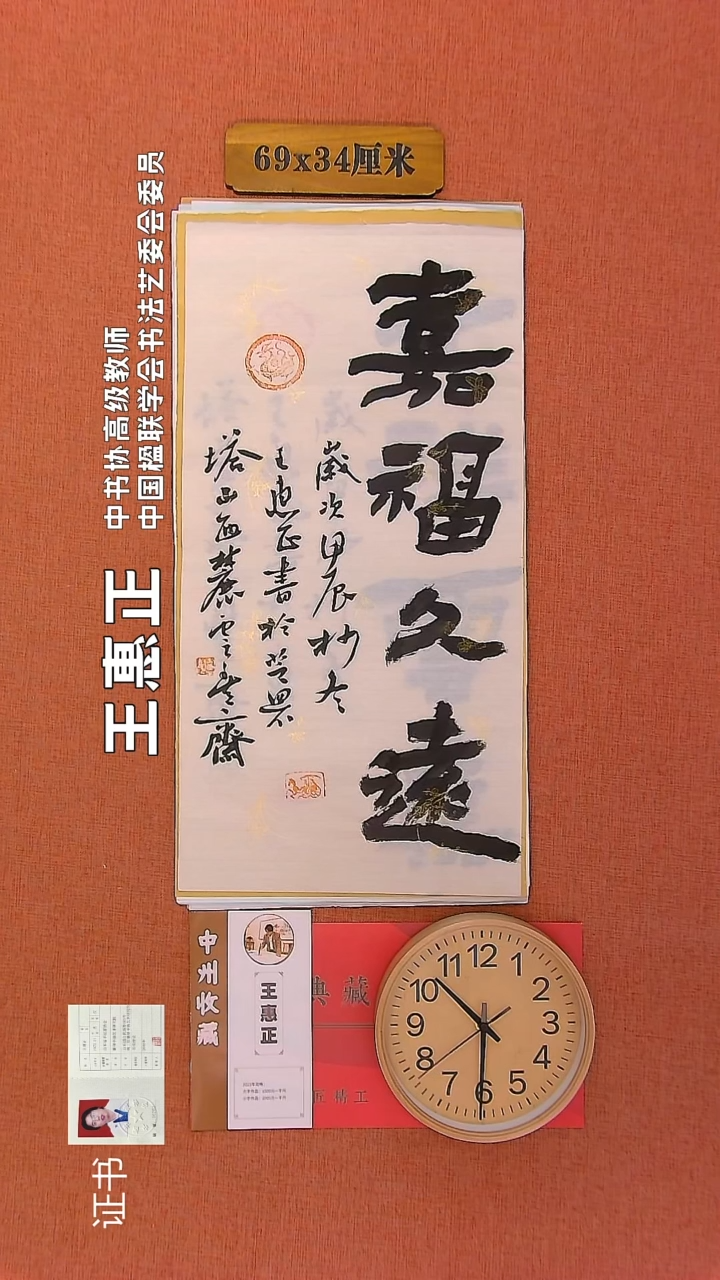 69x34厘米
中书协高级教师
中国楹联学会书法艺委会委员
王惠正
嘉福久远
歲次甲辰杪冬
王惠正書於芝罘
塔山西麓雲峰齋
中州收藏
王惠正
典藏
匠精工
12
1
2
3
4
5
6
7
8
9
10
11
证书